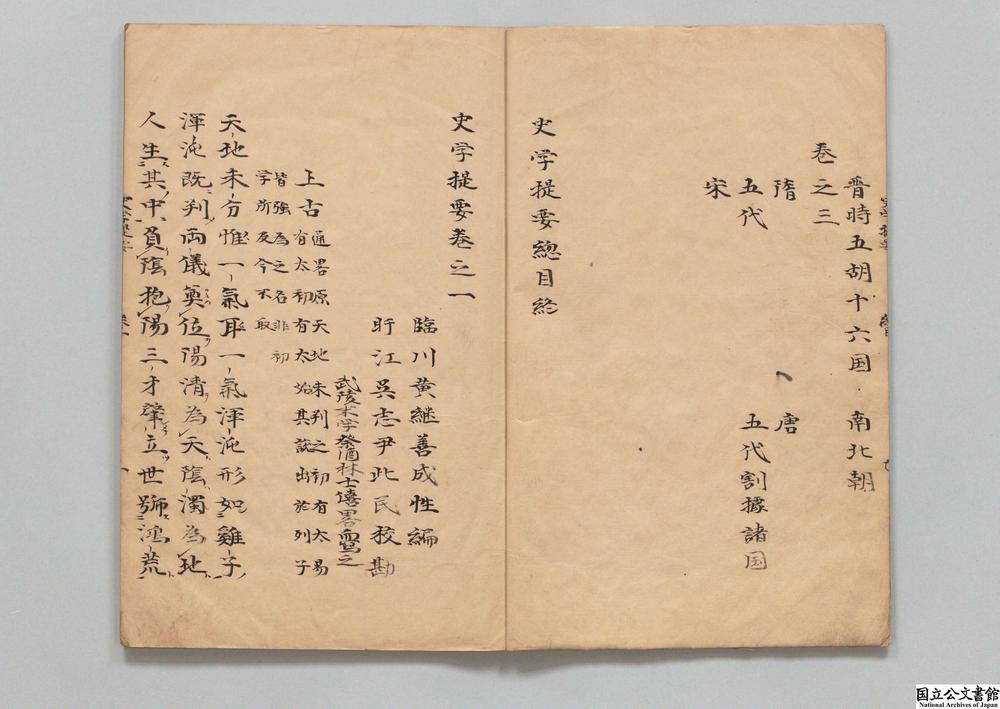 晉時五胡十六国 南北朝
卷之三
隋 唐
五代 五代割據諸国
宋
史学提要總目終
史学提要卷之一
臨川黄継善成性編
盱江吳志尹此民校勘
武陵木学癸酒林士僖畧寫之
上古 通畧原天地未判之初有太易
有太初有太始其說出於列子
皆強為之名非初
学所及今不取
天地未分惟一氣耳一氣渾沌形如雞子
渾沌既判両儀奠位陽清為天陰濁為地
人生其中負陰抱陽三才肇立世號鴻荒
国立公文書館
National Archives of Japan